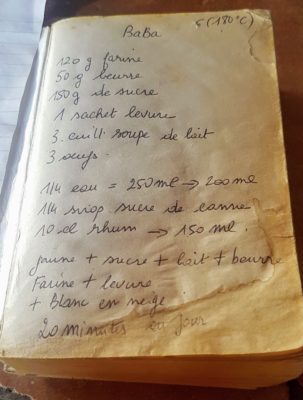 BaBa 6 (180°C)
120 g farine
50 g beurre
150 g de sucre
1 sachet levure
3 cuill soupe de lait
3 oeufs.
1/4 eau = 250 ml → 200 ml
1/4 sirop sucre de canne
10 cl rhum → 150 ml.
jaune + sucre + lait + beurre
Farine + levure
+ Blanc en neige
20 minutes au four